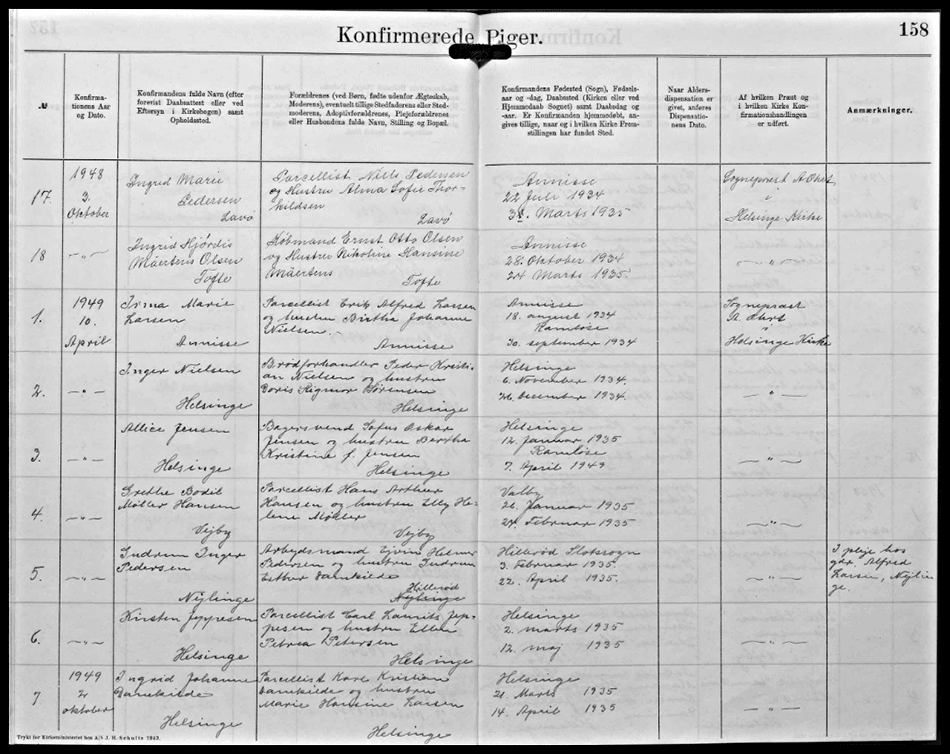 Konfirmerede Piger.
158
№
Konfirma-
tionens Aar
og Dato.
Konfirmandens fulde Navn (efter
forevist Daabsattest eller ved
Eftersyn i Kirkebogen) samt
Opholdssted.
Forældrenes (ved Børn, fødte udenfor Ægteskab,
Moderens), eventuelt tillige Stedfaderens eller Sted-
moderens, Adoptivforældrenes, Plejeforældrenes
eller Husbondens fulde Navn, Stilling og Bopæl.
Konfirmandens Fødested (Sogn), Fødsels-
aar og -dag, Daabssted (Kirken eller ved
Hjemmedaab Sognet) samt Daabsdag og
-aar. Er Konfirmanden hjemmedøbt, an-
gives tillige, naar og i hvilken Kirke Frem-
stillingen har fundet Sted.
Naar Alders-
dispensation er
givet, anføres
Dispensatio-
nens Dato.
Af hvilken Præst og
i hvilken Kirke Kon-
firmationshandlingen
er udført.
Anmærkninger.
17.
1948
3.
Oktober
Ingrid Marie
Pedersen
Lavø
Parcellist Niels Pedersen
og Hustru Alma Sofie Thor-
kildsen
Lavø
Annisse
22 Juli 1934
31. Marts 1935
Sognepræst A. Ohrt
i
Helsinge Kirke
18
—"—
Ingrid Hjørdis
Mäertens Olsen
Tofte
Købmand Ernst Otto Olsen
og Hustru Nikoline Hansine
Mäertens
Tofte
Annisse
28. Oktober 1934
24. Marts 1935
—"—
1.
1949
10.
April
Irma Marie
Larsen
Annisse
Parcellist Erik Alfred Larsen
og hustru Birtha Johanne
Nielsen.
Annisse
Annisse
18. august 1934
Ramløse
30. september 1934
Sognepræst
A. Ohrt
i
Helsinge Kirke
2.
—"—
Inger Nielsen
Helsinge
Brødforhandler Peder Kristi-
an Nielsen og hustru
Doris Sigmor Sørensen
Helsinge
Helsinge
6. November 1934.
26. december 1934.
—"—
3.
—"—
Allice Jensen
Helsinge
Bagersvend Sofus Oskar
Jensen og hustru Bertha
Kristine f. Jensen
Helsinge
Helsinge
12. Januar 1935
Ramløse
7. April 1949
—"—
4.
—"—
Grethe Bodil
Møller Hansen
Vejby
Parcellist Hans Arthur
Hansen og hustru Elly He-
lene Møller
Vejby
Valby
26. Januar 1935
24. Februar 1935
—"—
5.
—"—
Gudrun Inger
Pedersen
Nejlinge
Arbejdsmand Ejvind Helmer
Pedersen og hustru Gudrun
Esther Damkilde
Hillerød
Nejlinge
Hillerød Slotssogn
3. Februar 1935.
22. April 1935.
—"—
I pleje hos
gdr. Alfred
Larsen, Nejlin-
ge.
6.
—"—
Kirsten Jeppesen
Helsinge
Parcellist Carl Laurits Jep-
pesen og hustru Ellen
Petrea Petersen
Helsinge
Helsinge
2. marts 1935
12. maj 1935
—"—
7
1949
2
oktober
Ingrid Johanne
Danekilde
Helsinge
Parcellist Karl Kristian
Danekilde og hustru
Marie Hansine Larsen
Helsinge
Helsinge
21. Marts 1935
14. April 1935
—"—
Trykt for Kirkeministeriet hos A/S J. H. Schultz 1942.